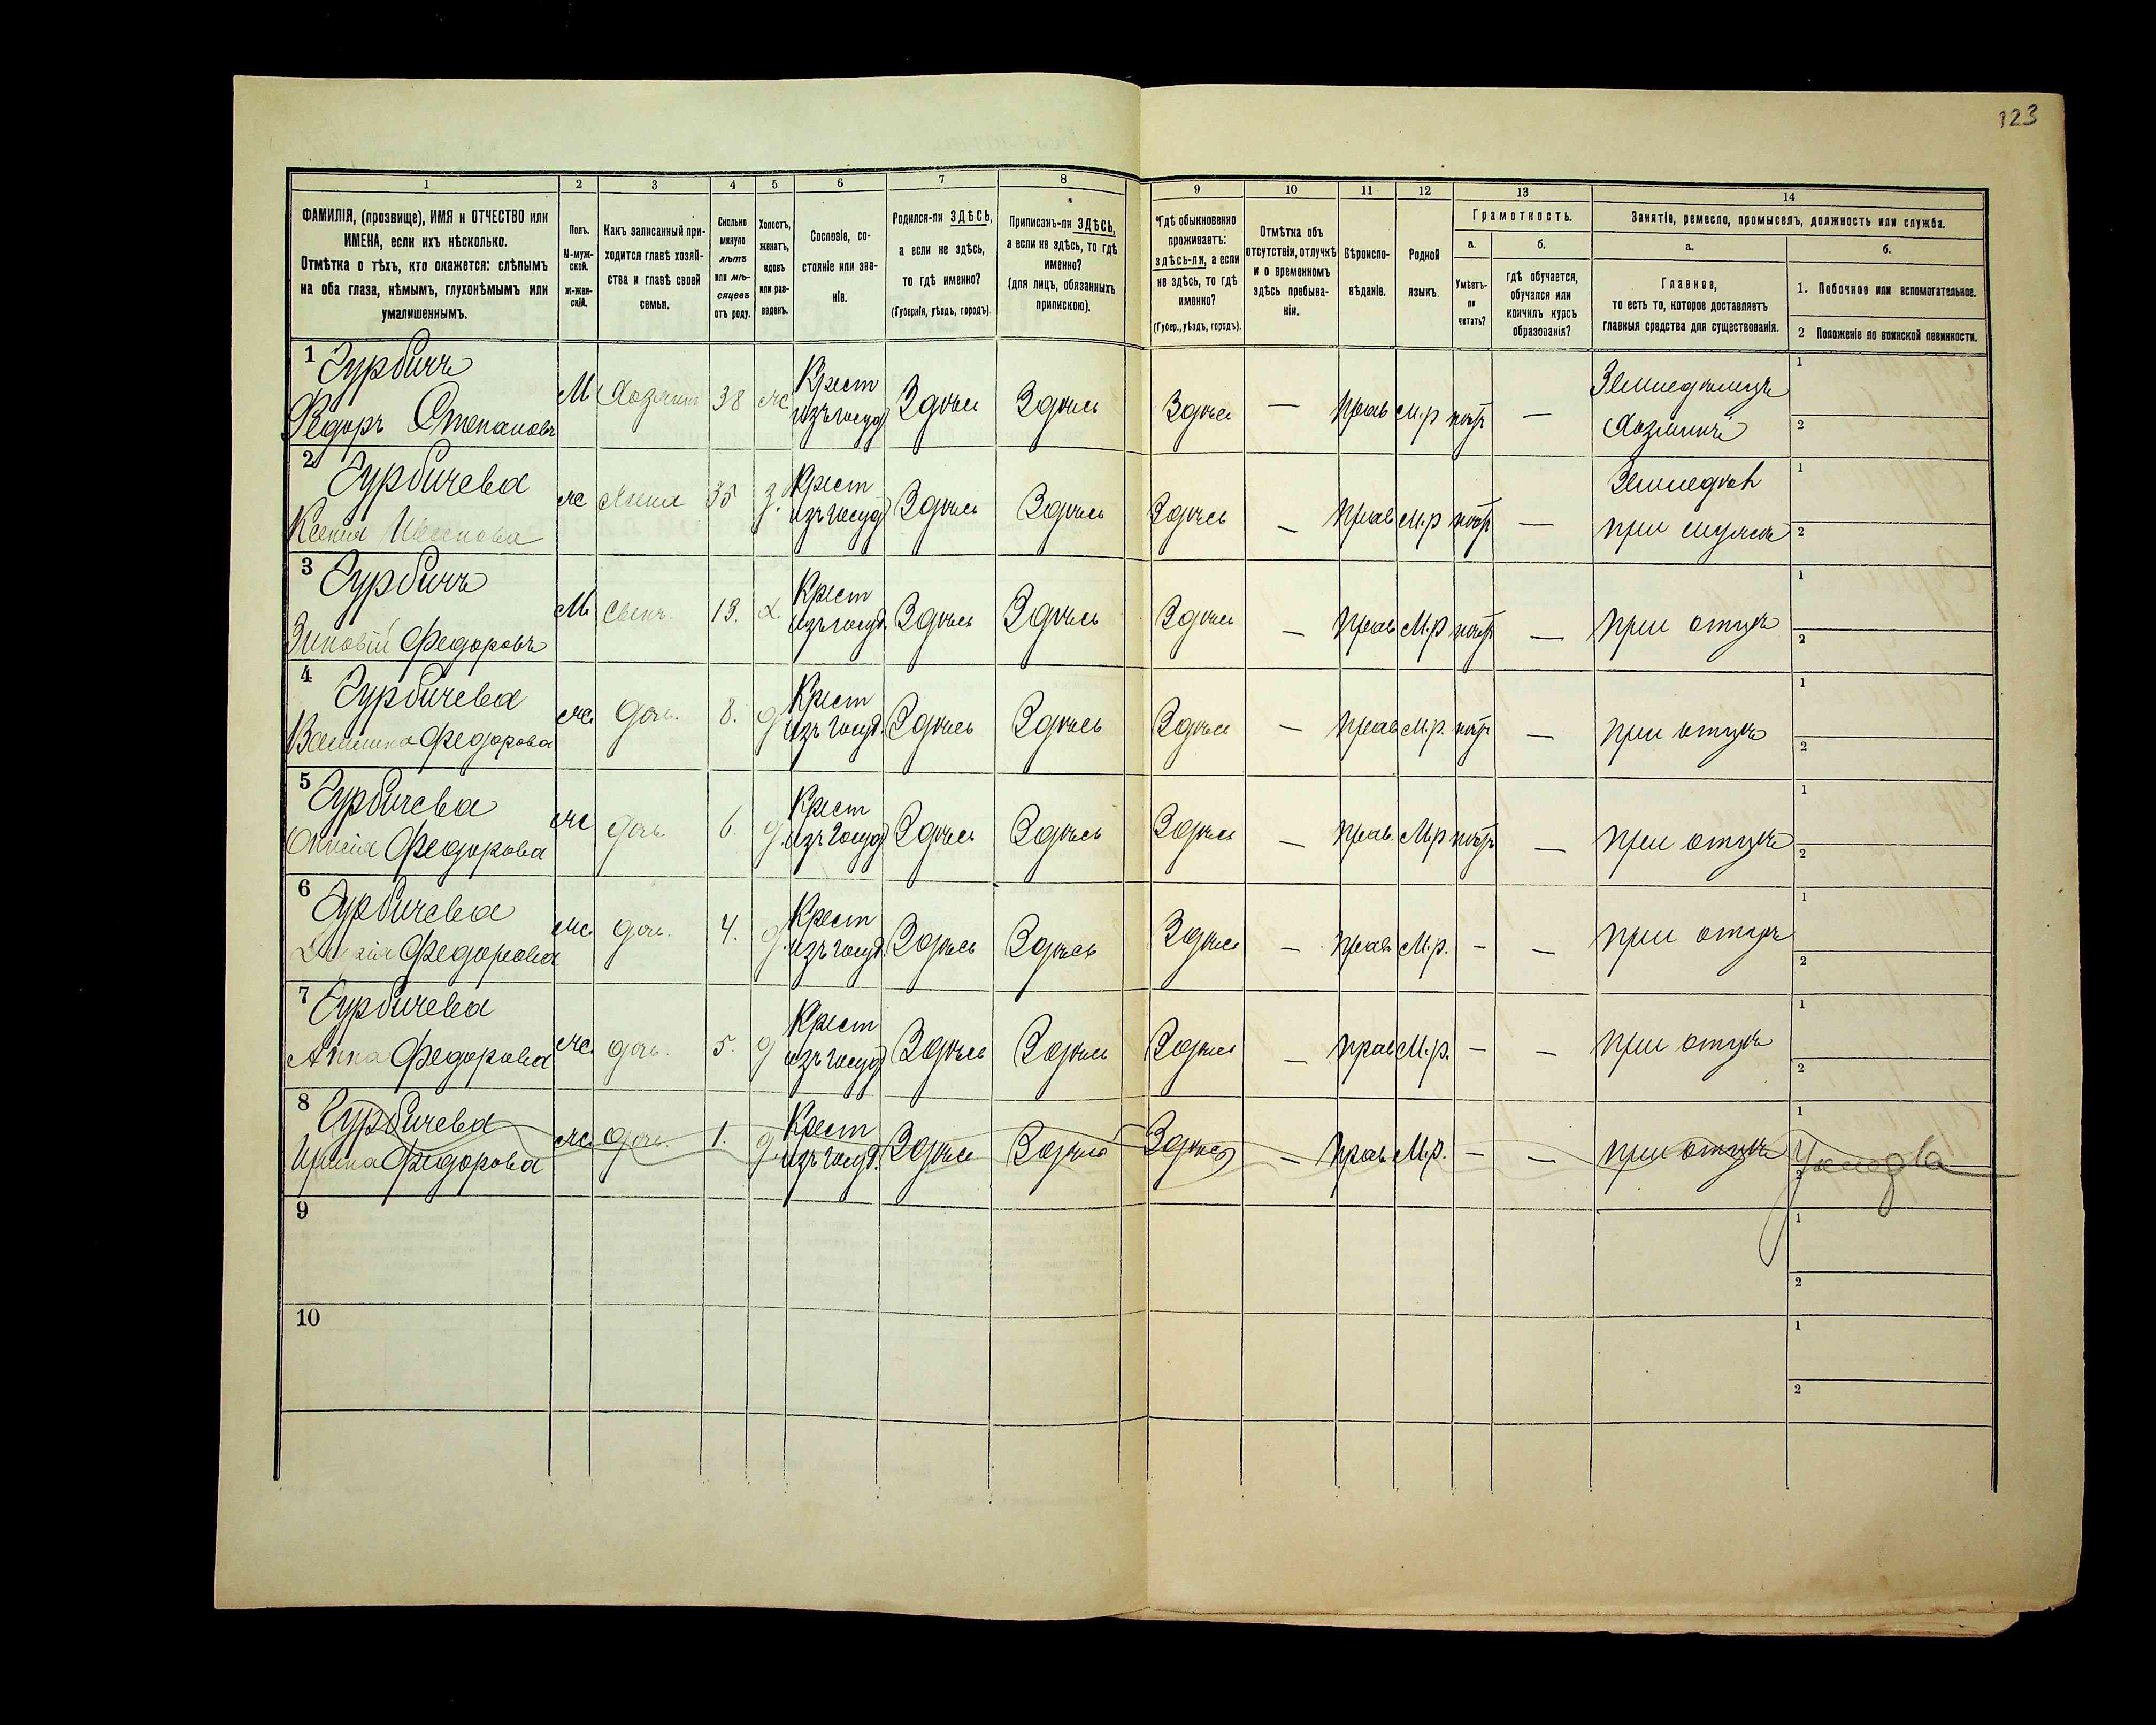 123
1 2 3 4 5 6 7 8 9 10 11 12 13 14
ФАМИЛІЯ, (прозвище), ИМЯ и ОТЧЕСТВО или
ИМЕНА, если ихъ нѣсколько.
Отмѣтка о тѣхъ, кто окажется: слѣпымъ
на оба глаза, нѣмымъ, глухонѣмымъ или
умалишеннымъ.
Полъ.
М-муж-
ской.
ж-жен-
скій.
Какъ записанный при-
ходится главѣ хозяй-
ства и главѣ своей
семьи.
Сколько
минуло
лѣтъ
или мѣ-
сяцевъ
отъ роду.
Холостъ,
женатъ,
вдовъ
или раз-
веденъ.
Сословіе, со-
стояніе или зва-
ніе.
Родился-ли ЗДѢСЬ,
а если не здѣсь,
то гдѣ именно?
(Губернія, уѣздъ, городъ).
Приписанъ-ли ЗДѢСЬ,
а если не здѣсь, то гдѣ
именно?
(для лицъ, обязанныхъ
припискою).
Гдѣ обыкновенно
проживаетъ:
здѣсь-ли, а если
не здѣсь, то гдѣ
именно?
(Губер., уѣздъ, городъ).
Отмѣтка объ
отсутствіи, отлучкѣ
и о временномъ
здѣсь пребыва-
ніи.
Вѣроиспо-
вѣданіе.
Родной
языкъ.
Грамотность.
а.
Умѣетъ-
ли
читать?
б.
гдѣ обучается,
обучался или
кончилъ курсъ
образованія?
Занятіе, ремесло, промыселъ, должность или служба.
а.
Главное,
то есть то, которое доставляетъ
главныя средства для существованія.
б.
1. Побочное или вспомогательное.
2 Положеніе по воинской повинности.
1 Гурбичъ
Федоръ Степановъ
М Хозяинъ 38 ж
Крест
изъ госуд
Здѣсь Здѣсь Здѣсь — прав М.р — Земледѣлецъ
Хозяинъ
1
2
2 Гурбичева
Ксенія
ж жена 35 з.
Крест
изъ госуд
Здѣсь Здѣсь Здѣсь — прав М.р — Земледѣл
при мужѣ
1
2
3 Гурбичъ
Зиновій Федоровъ
М сынъ. 13. х.
Крест
изъ госуд.
Здѣсь Здѣсь Здѣсь — прав М.р — при отцѣ
1
2
4 Гурбичева
Федорова
ж. дочь. 8. д
Крест
изъ госуд.
Здѣсь Здѣсь Здѣсь — прав М.р. — при отцѣ
1
2
5 Гурбичева
Федорова
ж дочь 6. д.
Крест
изъ госуд
Здѣсь Здѣсь Здѣсь — прав. М.р — при отцѣ
1
2
6 Гурбичева
Федорова
ж. дочь. 4. д.
Крест
изъ госуд.
Здѣсь Здѣсь Здѣсь — прав М.р. — — при отцѣ
1
2
7 Гурбичева
Анна Федорова
ж. дочь. 5. д
Крест
изъ госуд
Здѣсь Здѣсь Здѣсь — прав М.р. — — при отцѣ
1
2
8 Гурбичева
Ирина Федорова
ж. дочь. 1. д.
Крест
изъ госуд.
Здѣсь Здѣсь Здѣсь — прав М.р. — — при отцѣ
1
2
9
1
2
10
1
2